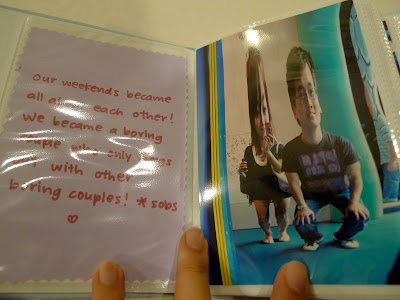 Our weekends became
all about each other!
We became a boring
couple who only hangs
out with other
boring couples! *sobs